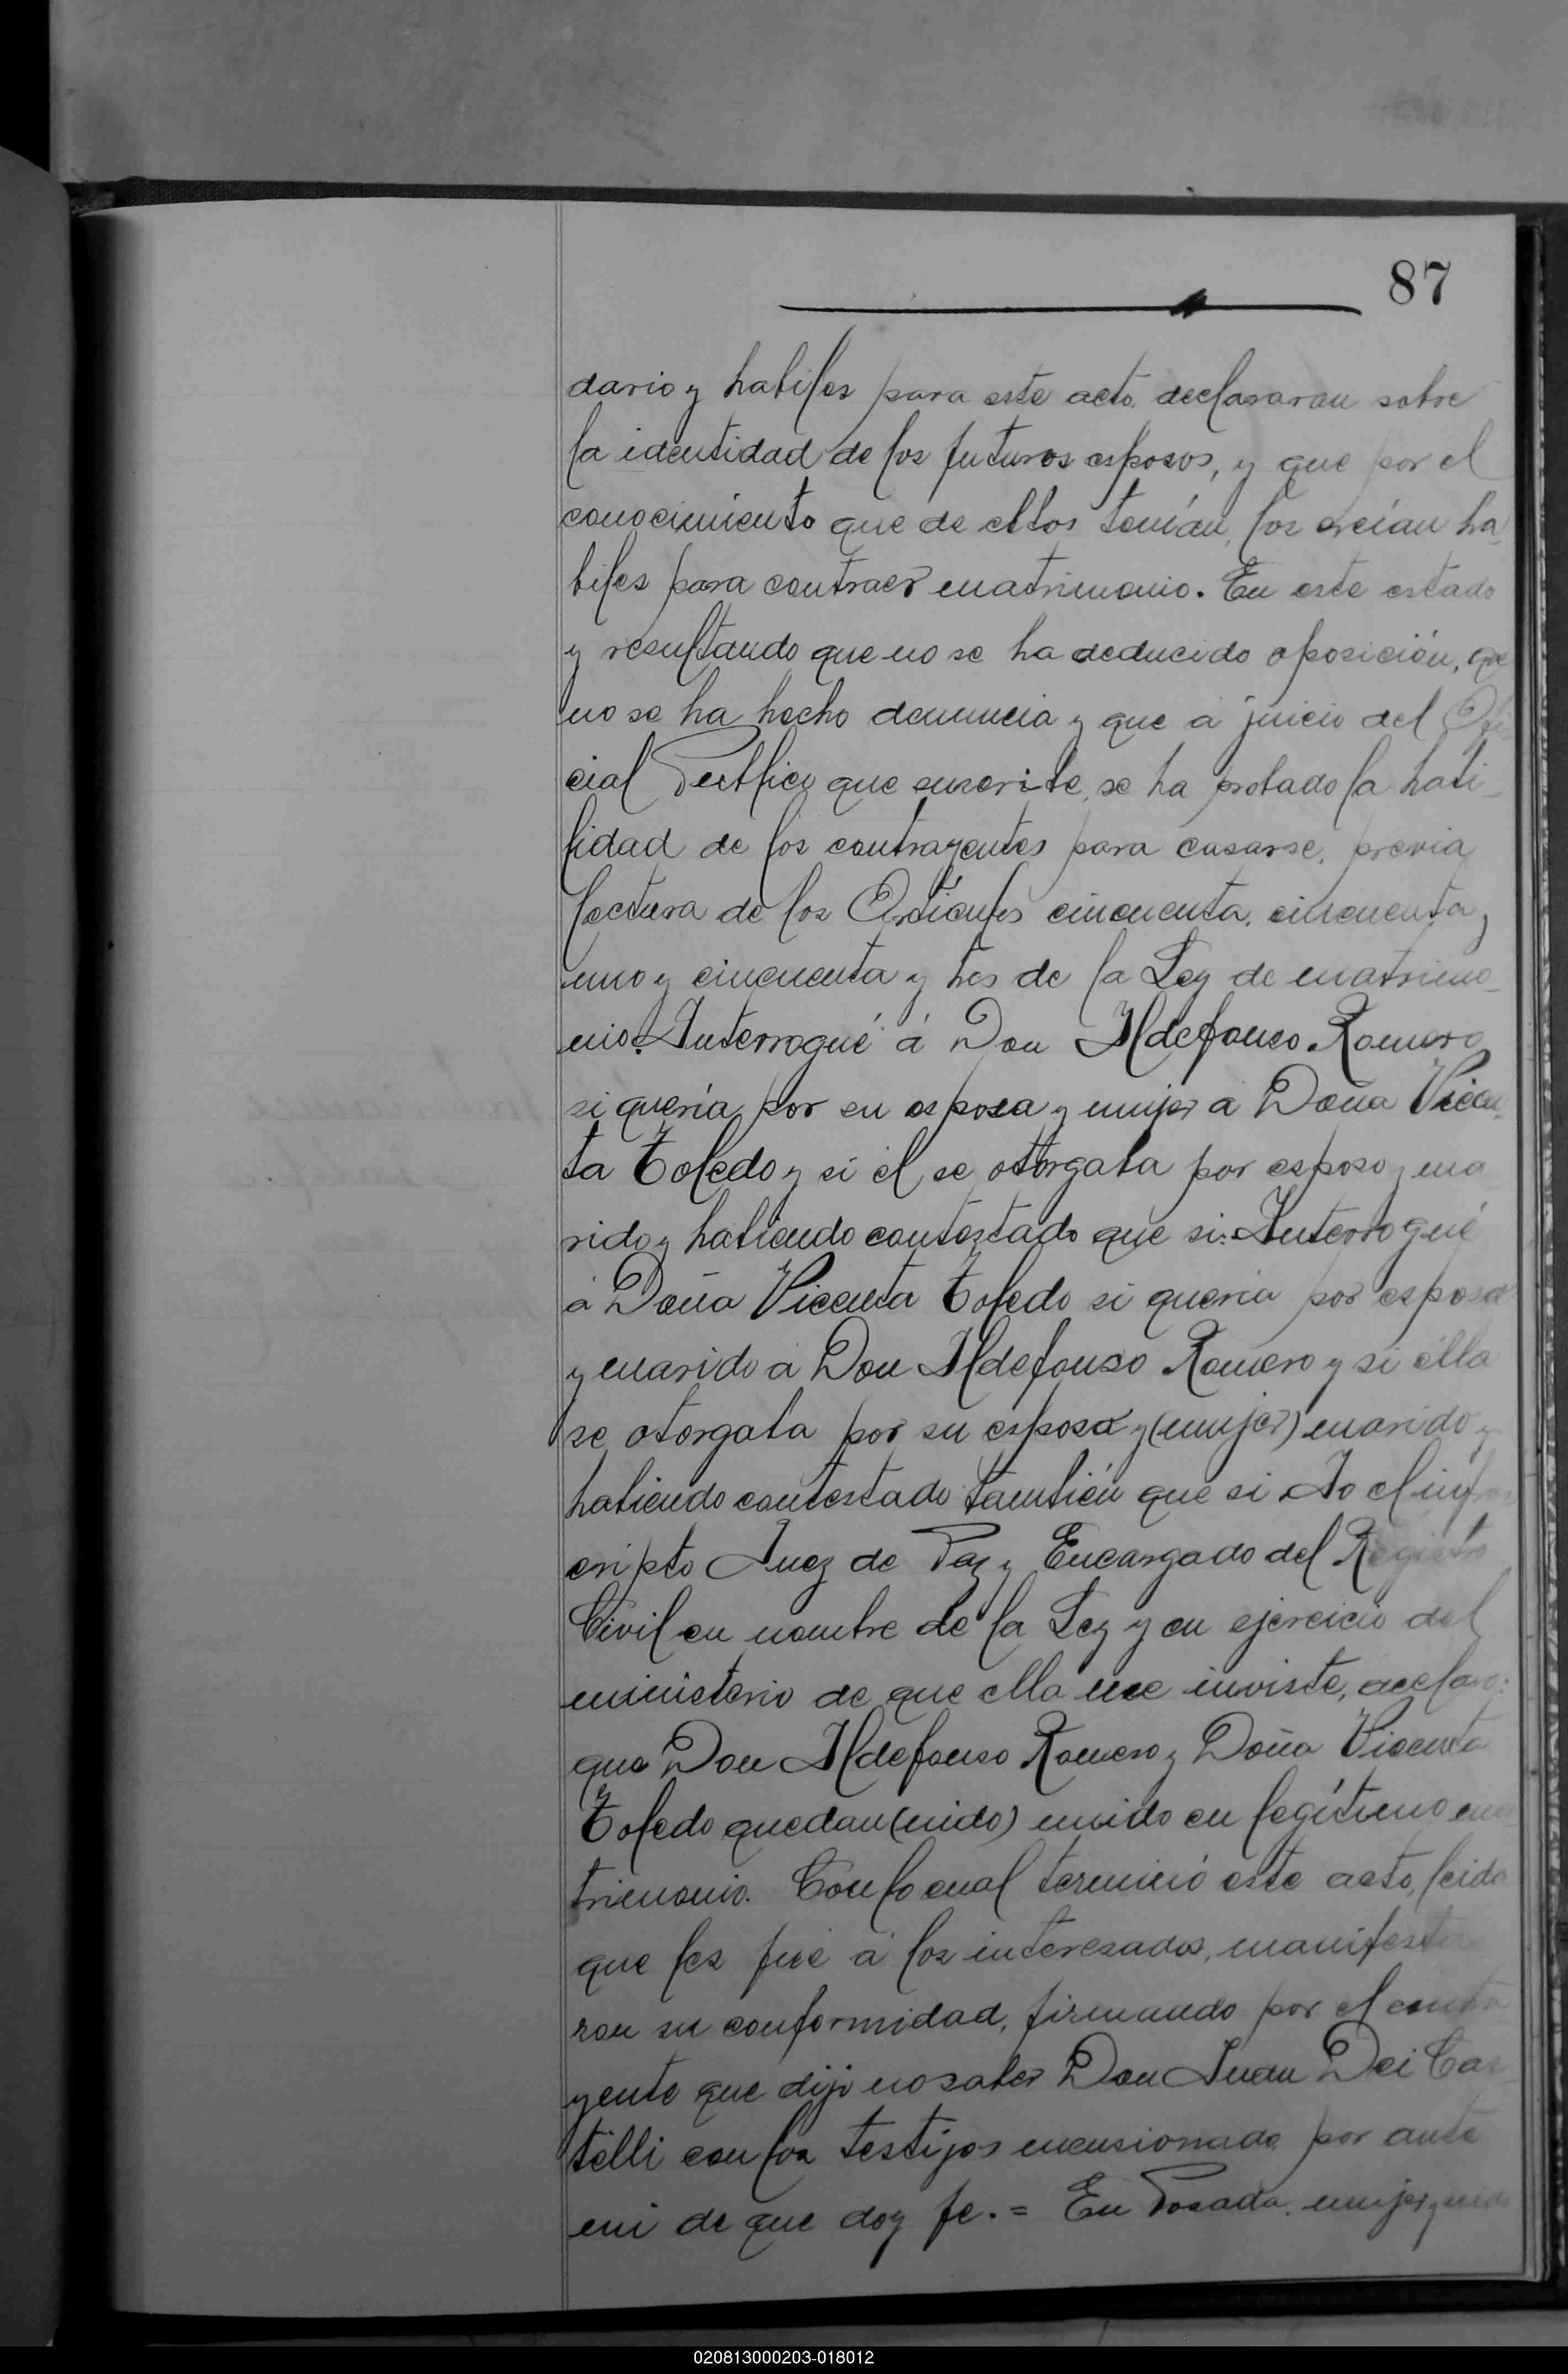 87
dario y habiles para este acto, declararan sobre
la identidad de los futuros esposos, y que por el
conocimiento que de ellos tenían, los creían ha
biles para contraer matrimonio. En este estado
y resultando que no se ha deducido oposición, que
no se ha hecho denuncia y que a juicio del Ofi
cial Publico que suscribe, se ha probado la habi-
lidad de los contrayentes para casarse, previa
lectura de los Artículos cincuenta, cincuenta y
uno y cincuenta y tres de la Ley de matrimo-
nio: Interrogué á Don Ildefonso Romero
si quería por su esposa y mujer a Doña Vicen-
ta Toledo y si el se otorgaba por esposo y ma
rido y habiendo contestado que si: Interrogué
á Doña Vicenta Toledo si queria por esposo
y marido a Don Ildefonso Romero y si ella
se otorgaba por su esposa y (mujer) marido y
habiendo contestado también que si Yo el infras
cripto Juez de Paz y Encargado del Registro
Civil en nombre de la Ley y en ejercicio del
ministerio de que ella me inviste, declaro:
que Don Ildefonso Romero y Doña Vicenta
Toledo quedan (nido) unido en legítimo ma
trimonio. Con lo cual terminó este acto, leida
que les fué a los interesados, manifesta
ron su conformidad, firmando por el contra
yente que dijo no saber Don Juan Dei Cas
telli con los testijos mensionado por ante
mi de que doy fe. = En Posada, mujer y nido
020813000203-018012